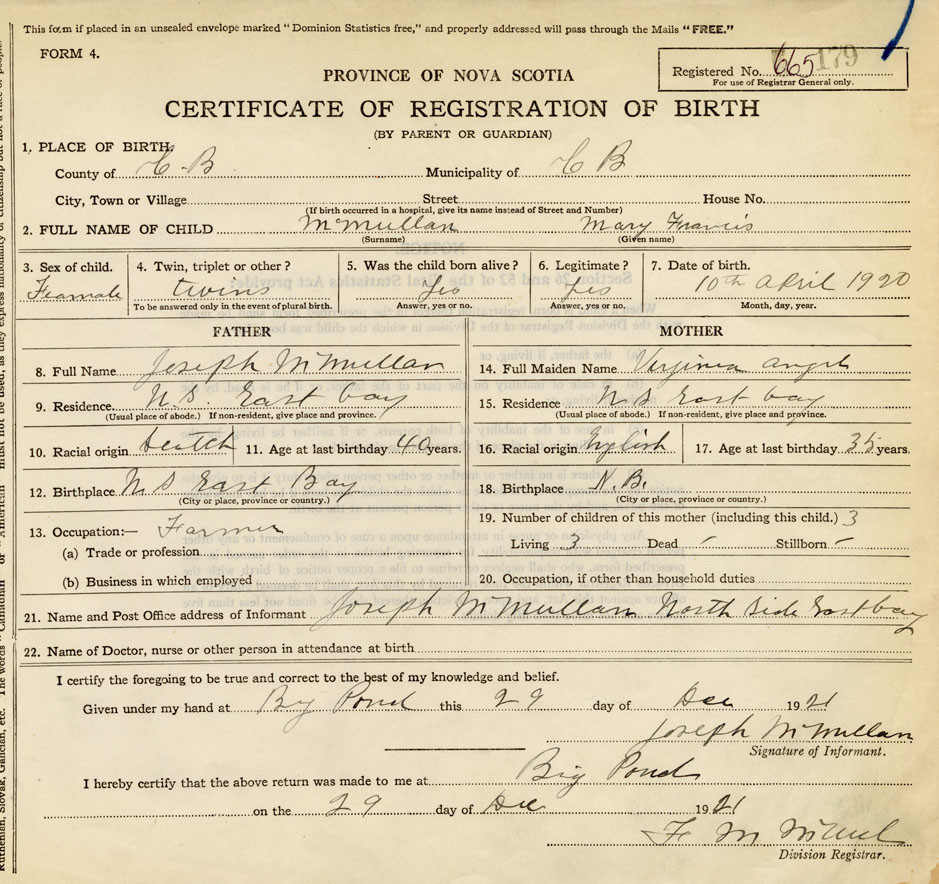 This form if placed in an unsealed envelope marked "Dominion Statistics free," and properly addressed will pass through the Mails "FREE."
FORM 4.
Registered No. 665 179
For use of Registrar General only.
PROVINCE OF NOVA SCOTIA
CERTIFICATE OF REGISTRATION OF BIRTH
(BY PARENT OR GUARDIAN)
1. PLACE OF BIRTH:
County of C. B Municipality of C B
City, Town or Village Street House No.
(If birth occurred in a hospital, give its name instead of Street and Number)
2. FULL NAME OF CHILD McMullan Mary Francis
(Surname) (Given name)
3. Sex of child. 4. Twin, triplet or other? 5. Was the child born alive? 6. Legitimate? 7. Date of birth.
Feamale twins Yes Yes 10th April 1920
To be answered only in the event of plural birth. Answer, yes or no. Answer, yes or no. Month, day, year.
FATHER MOTHER
8. Full Name Joseph McMullan 14. Full Maiden Name Virginia
9. Residence N.S East bay 15. Residence N S East bay
(Usual place of abode.) If non-resident, give place and province. (Usual place of abode.) If non-resident, give place and province.
10. Racial origin 11. Age at last birthday 40 years. 16. Racial origin English 17. Age at last birthday 35 years.
12. Birthplace N S East Bay 18. Birthplace N. B.
(City or place, province or country.) (City or place, province or country.)
13. Occupation:— Farmer 19. Number of children of this mother (including this child.) 3
(a) Trade or profession Living 3 Dead – Stillborn –
(b) Business in which employed 20. Occupation, if other than household duties
21. Name and Post Office address of Informant Joseph McMullan North Side East bay
22. Name of Doctor, nurse or other person in attendance at birth
I certify the foregoing to be true and correct to the best of my knowledge and belief.
Given under my hand at Big Pond this 29 day of Dec 1921
Joseph McMullan
Signature of Informant.
I hereby certify that the above return was made to me at Big Pond
on the 29 day of Dec 1921
F M
Division Registrar.